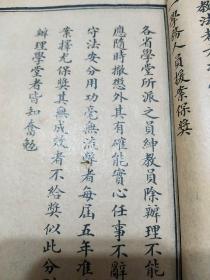 一學務人員援案保獎
各省學堂所派之員紳教員除辦理不能
應隨時撤懲外其有確能實心任事不辭
守法安分用功毫無流弊者每屆五年准
案擇尤保獎其無成效者不給獎似此分
辦理學堂者皆知奮勉